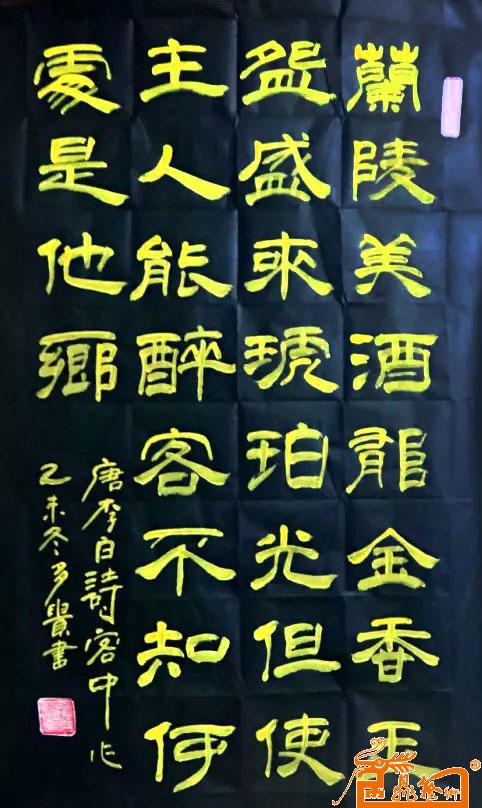 蘭陵美酒郁金香玉
盌盛來琥珀光但使
主人能醉客不知何
處是他鄉
唐李白詩客中作
乙未冬多賢書